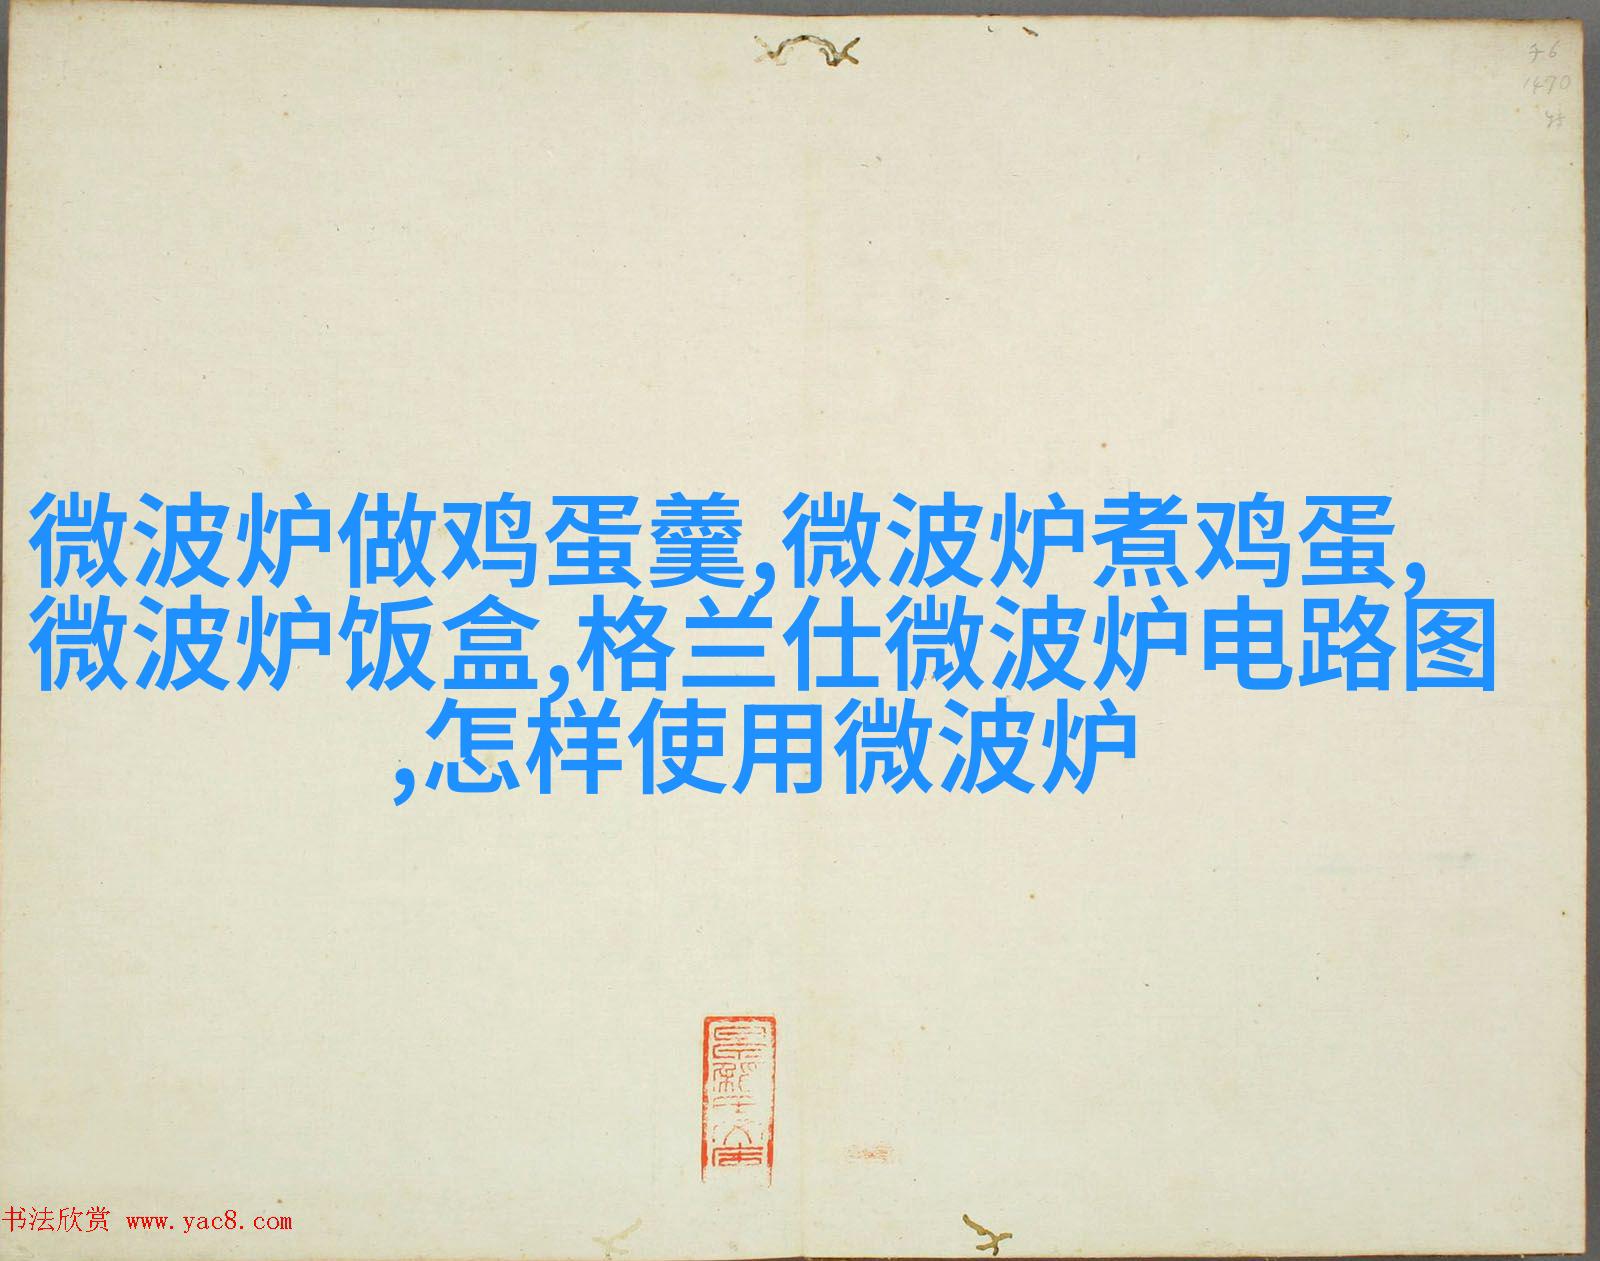 子6
1470
微波炉做鸡蛋羹,微波炉煮鸡蛋,
微波炉饭盒,格兰仕微波炉电路图
,怎样使用微波炉
书法欣赏 www.yac8.com